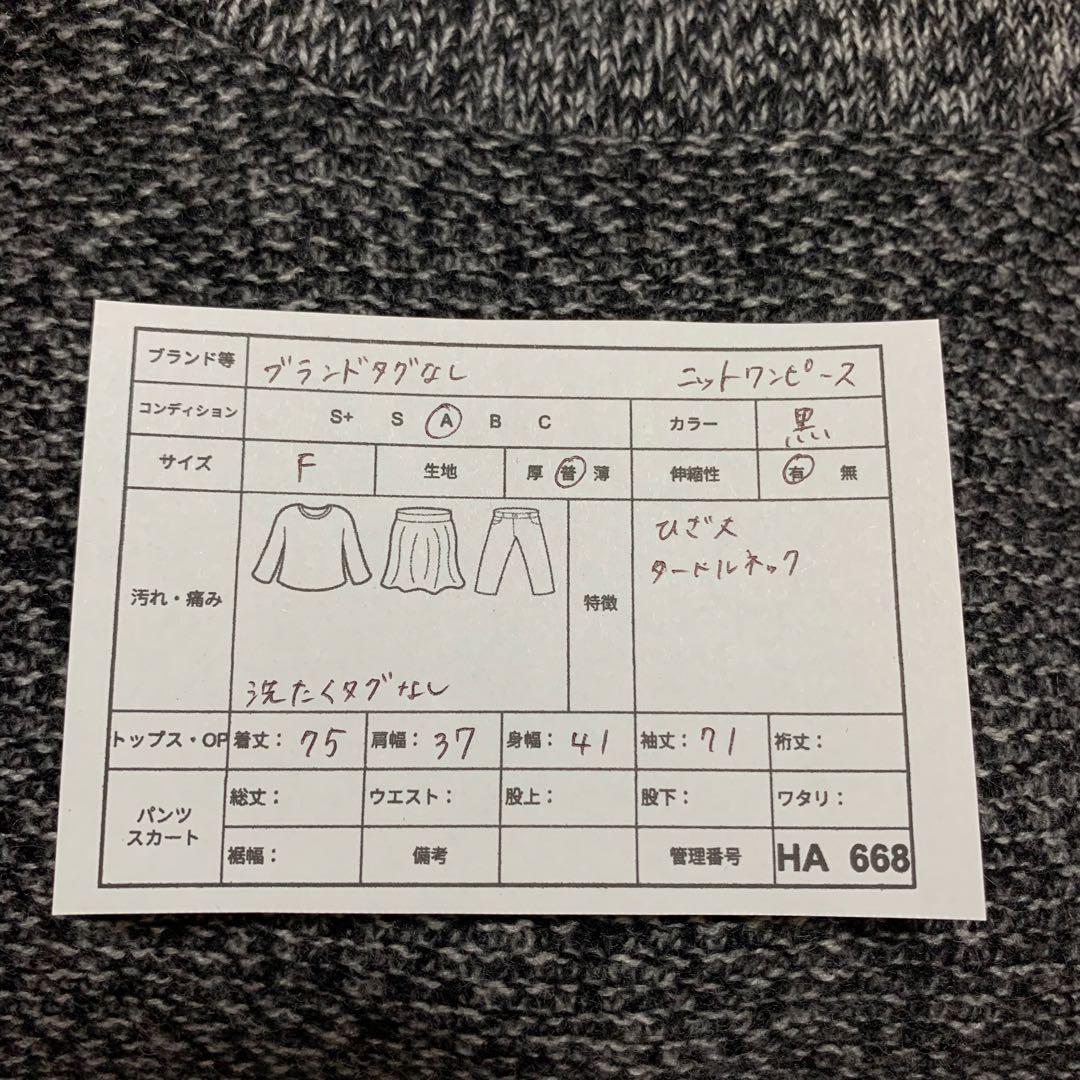 ブランド等 ブランドタグなし ニットワンピース
コンディション S+ S A B C カラー 黒
サイズ F 生地 厚 普 薄 伸縮性 有 無
ひざ丈
タートルネック
汚れ・痛み 特徴
洗たくタグなし
トップス・OP 着丈: 75 肩幅: 37 身幅: 41 袖丈: 71 裄丈:
パンツ
スカート
総丈: ウエスト: 股上: 股下: ワタリ:
裾幅: 備考 管理番号 HA 668